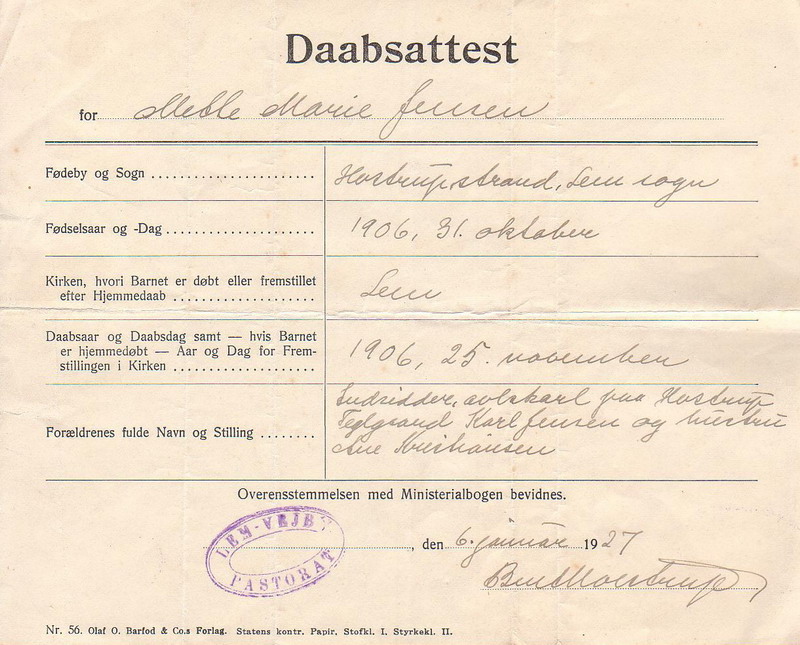 Daabsattest
for Mette Marie Jensen
Fødeby og Sogn
Hostrupstrand, Lem sogn
Fødselsaar og -Dag
1906, 31. oktober
Kirken, hvori Barnet er døbt eller fremstillet
efter Hjemmedaab
Lem
Daabsaar og Daabsdag samt — hvis Barnet
er hjemmedøbt — Aar og Dag for Frem-
stillingen i Kirken
1906, 25. november
Forældrenes fulde Navn og Stilling
Indsidder, avlskarl paa Hostrup
Teglgaard Karl Jensen og hustru
Ane Kristiansen
Overensstemmelsen med Ministerialbogen bevidnes.
LEM-VEJBY
PASTORAT
, den 6. januar 1927
Nr. 56. Olaf O. Barfod & Co.s Forlag. Statens kontr. Papir, Stofkl. I. Styrkekl. II.